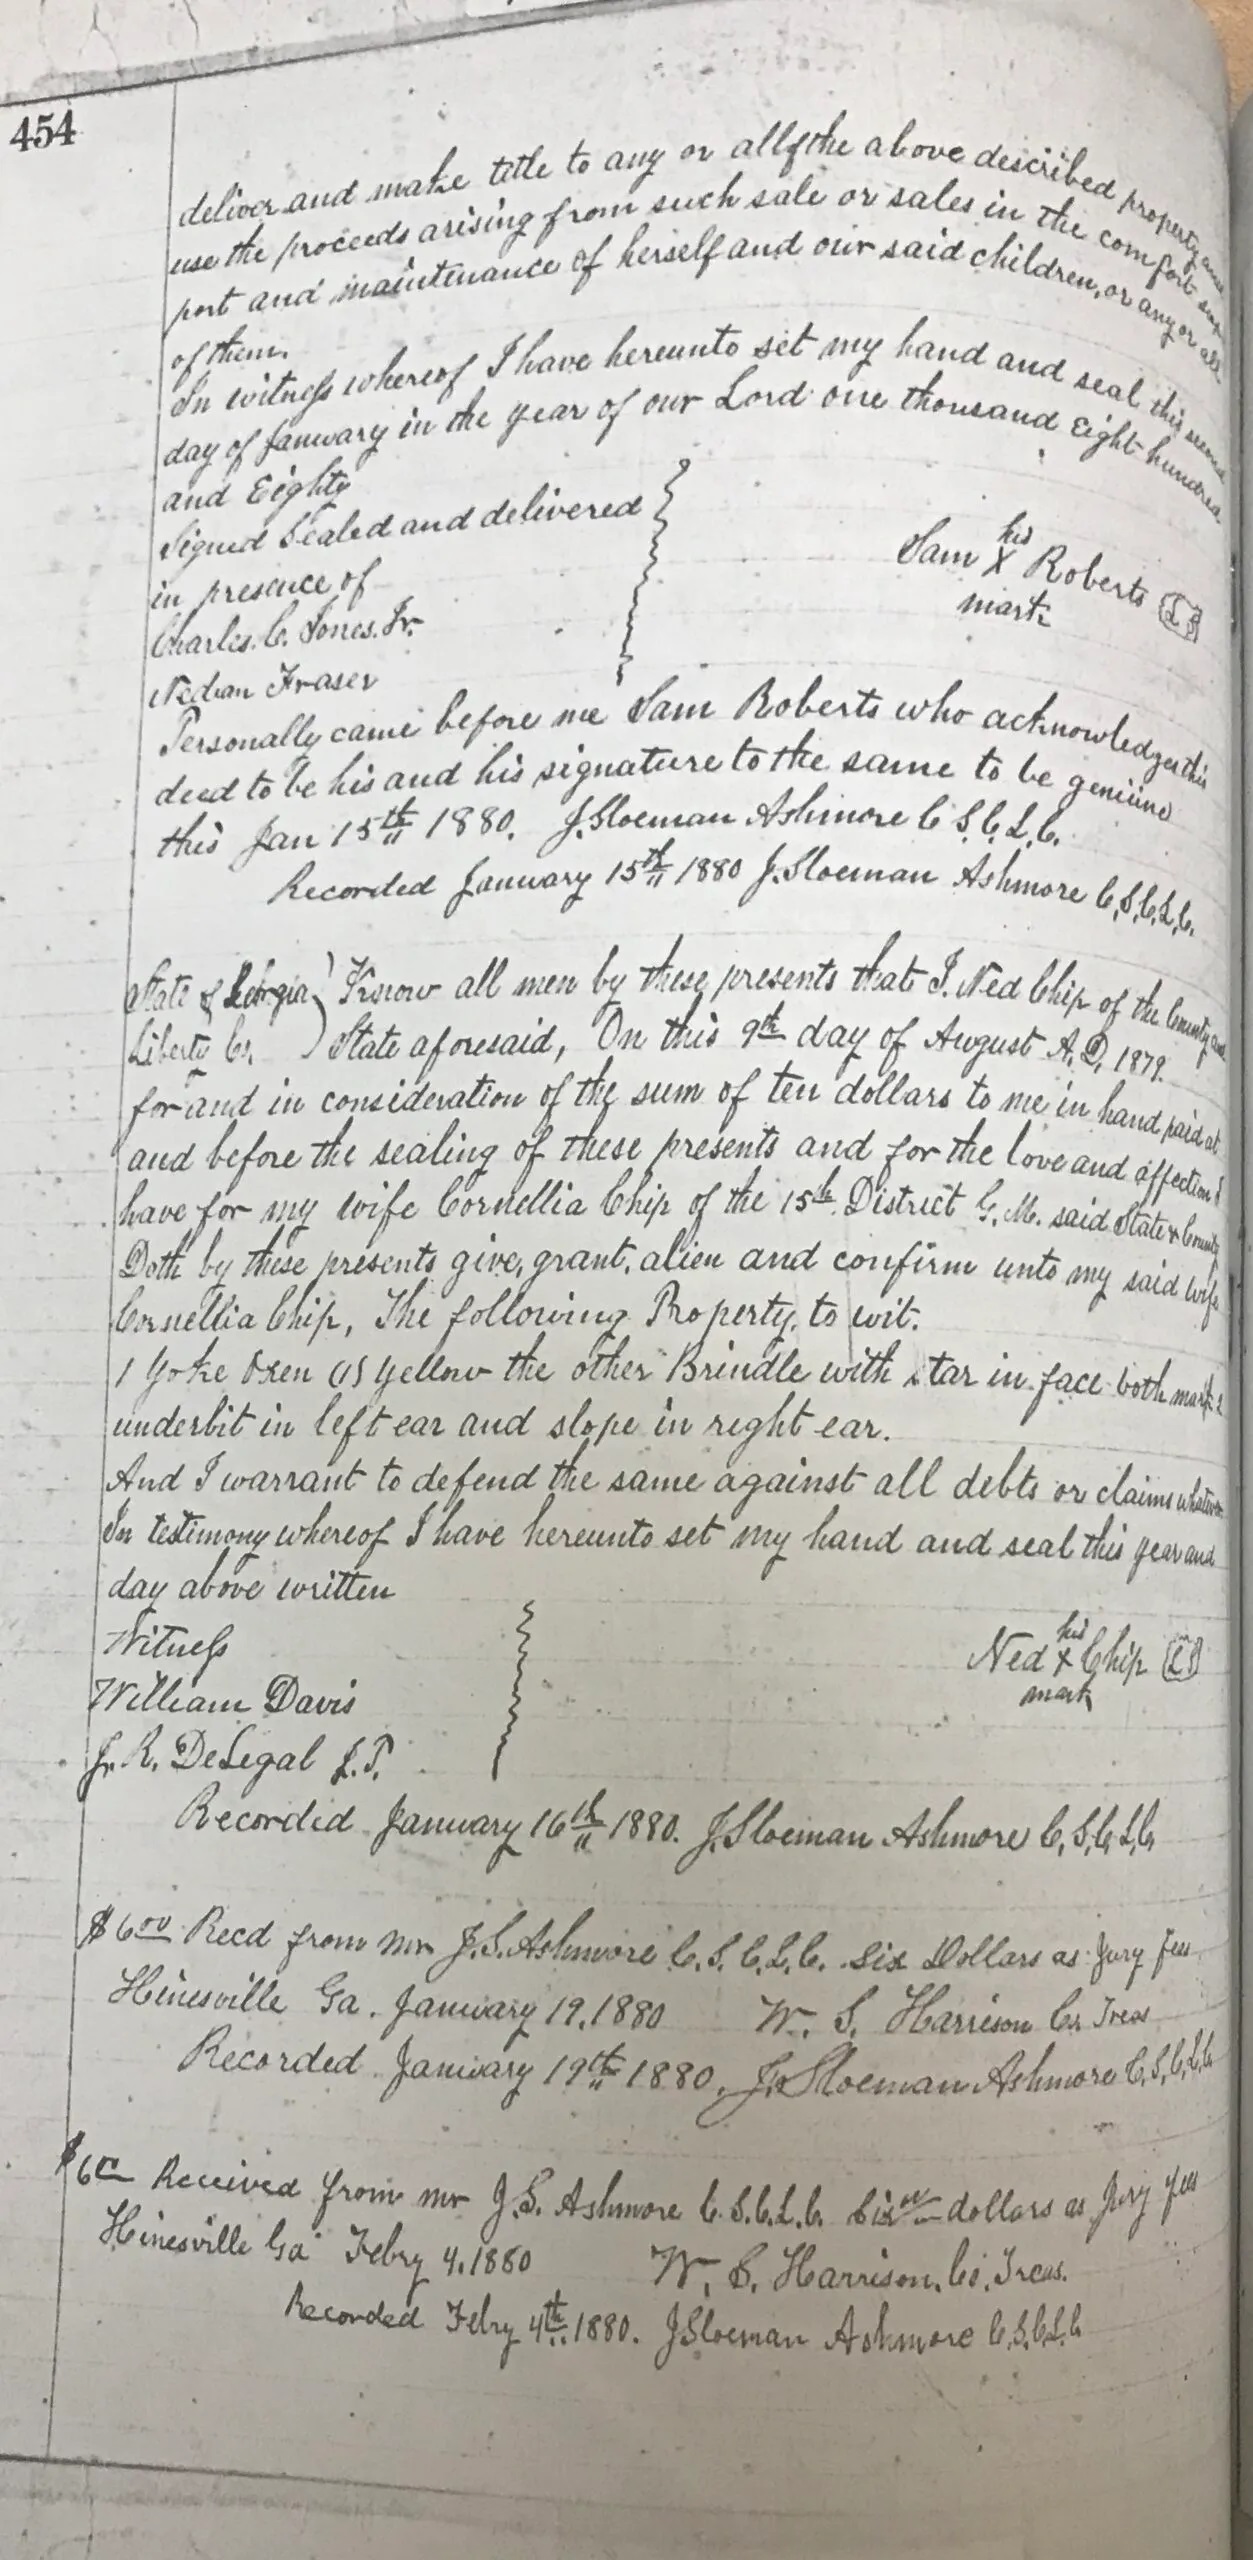 454
deliver and make title to any or all of the above described property and
use the proceeds arising from such sale or sales in the comfort sup
port and maintenance of herself and our said children, or any or all
of them.
In witness whereof I have hereunto set my hand and seal this second
day of January in the year of our Lord one thousand Eight hundred
and Eighty
Signed Sealed and delivered
in presence of
Sam his X mark Roberts L S
Charles. C. Jones. Jr.
Fraser
Personally came before me Sam Roberts who acknowledges this
deed to be his and his signature to the same to be genuine
this Jan 15th 1880. J. Sloeman Ashmore C S. C. L. C.
Recorded January 15th 1880 J. Sloeman Ashmore C. S. C. L. C.
State of Georgia Know all men by these presents that I. Ned Chip of the County and
Liberty Co. State aforesaid, On this 9th day of August A. D. 1879.
for and in consideration of the sum of ten dollars to me in hand paid at
and before the sealing of these presents and for the love and affection I
have for my wife Cornellia Chip of the 15th District G. M. said State & County
Doth by these presents give, grant, alien and confirm unto my said wife
Cornellia Chip, The following Property, to wit.
1 Yoke Oxen (1) Yellow the other Brindle with star in face both mark
underbit in left ear and slope in right ear.
And I warrant to defend the same against all debts or claims whatever
In testimony whereof I have hereunto set my hand and seal this year and
day above written
Witness
Ned his X mark Chip L S
William Davis
J. R. DeLegal J. P.
Recorded January 16th 1880. J. Sloeman Ashmore C. S. C. L. C.
$6 00 Recd from Mr J. S. Ashmore C. S. C. L. C. Six Dollars as Jury fees
Hinesville Ga. January 19. 1880 W. S. Harrison Co Treas
Recorded January 19th 1880. J. Sloeman Ashmore C. S. C. L. C.
$6 Received from Mr J. S. Ashmore C. S. C. L. C. Six dollars as Jury fees
Hinesville Ga Febry 4. 1880 W. S. Harrison, Co. Treas.
Recorded Febry 4th 1880. J Sloeman Ashmore C. S. C. L. C